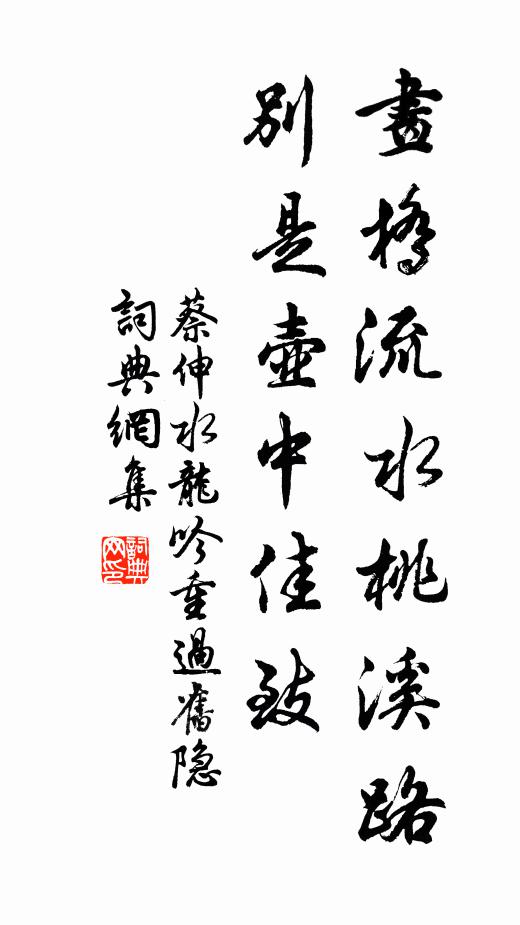 畫橋流水桃溪路
別是壺中佳致
蔡伸水龍吟重過舊隐
詞典網集
詞典网印